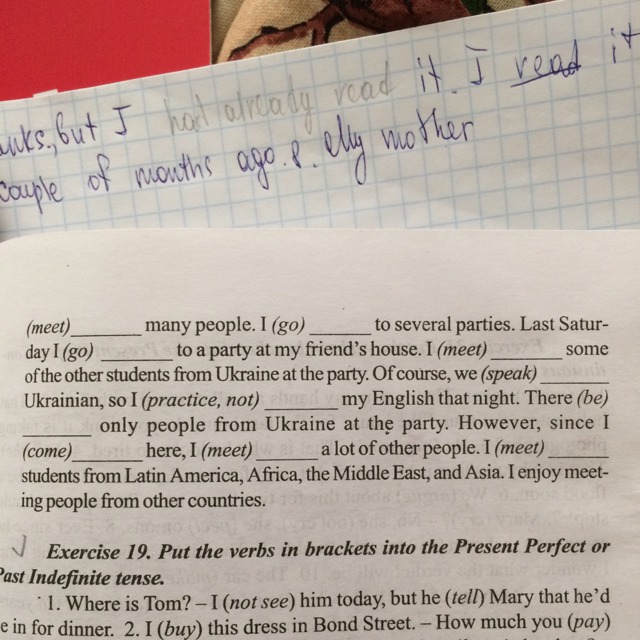 anks, but I had already read it. I read it
couple of months ago. 8. My mother
(meet)______ many people. I (go) ______ to several parties. Last Satur-
day I (go) ______ to a party at my friend's house. I (meet)______ some
of the other students from Ukraine at the party. Of course, we (speak) ______
Ukrainian, so I (practice, not) ______ my English that night. There (be)
______ only people from Ukraine at the party. However, since I
(come)______ here, I (meet) ______ a lot of other people. I (meet) ______
students from Latin America, Africa, the Middle East, and Asia. I enjoy meet-
ing people from other countries.
Exercise 19. Put the verbs in brackets into the Present Perfect or
Past Indefinite tense.
1. Where is Tom? – I (not see) him today, but he (tell) Mary that he'd
e in for dinner. 2. I (buy) this dress in Bond Street. – How much you (pay)